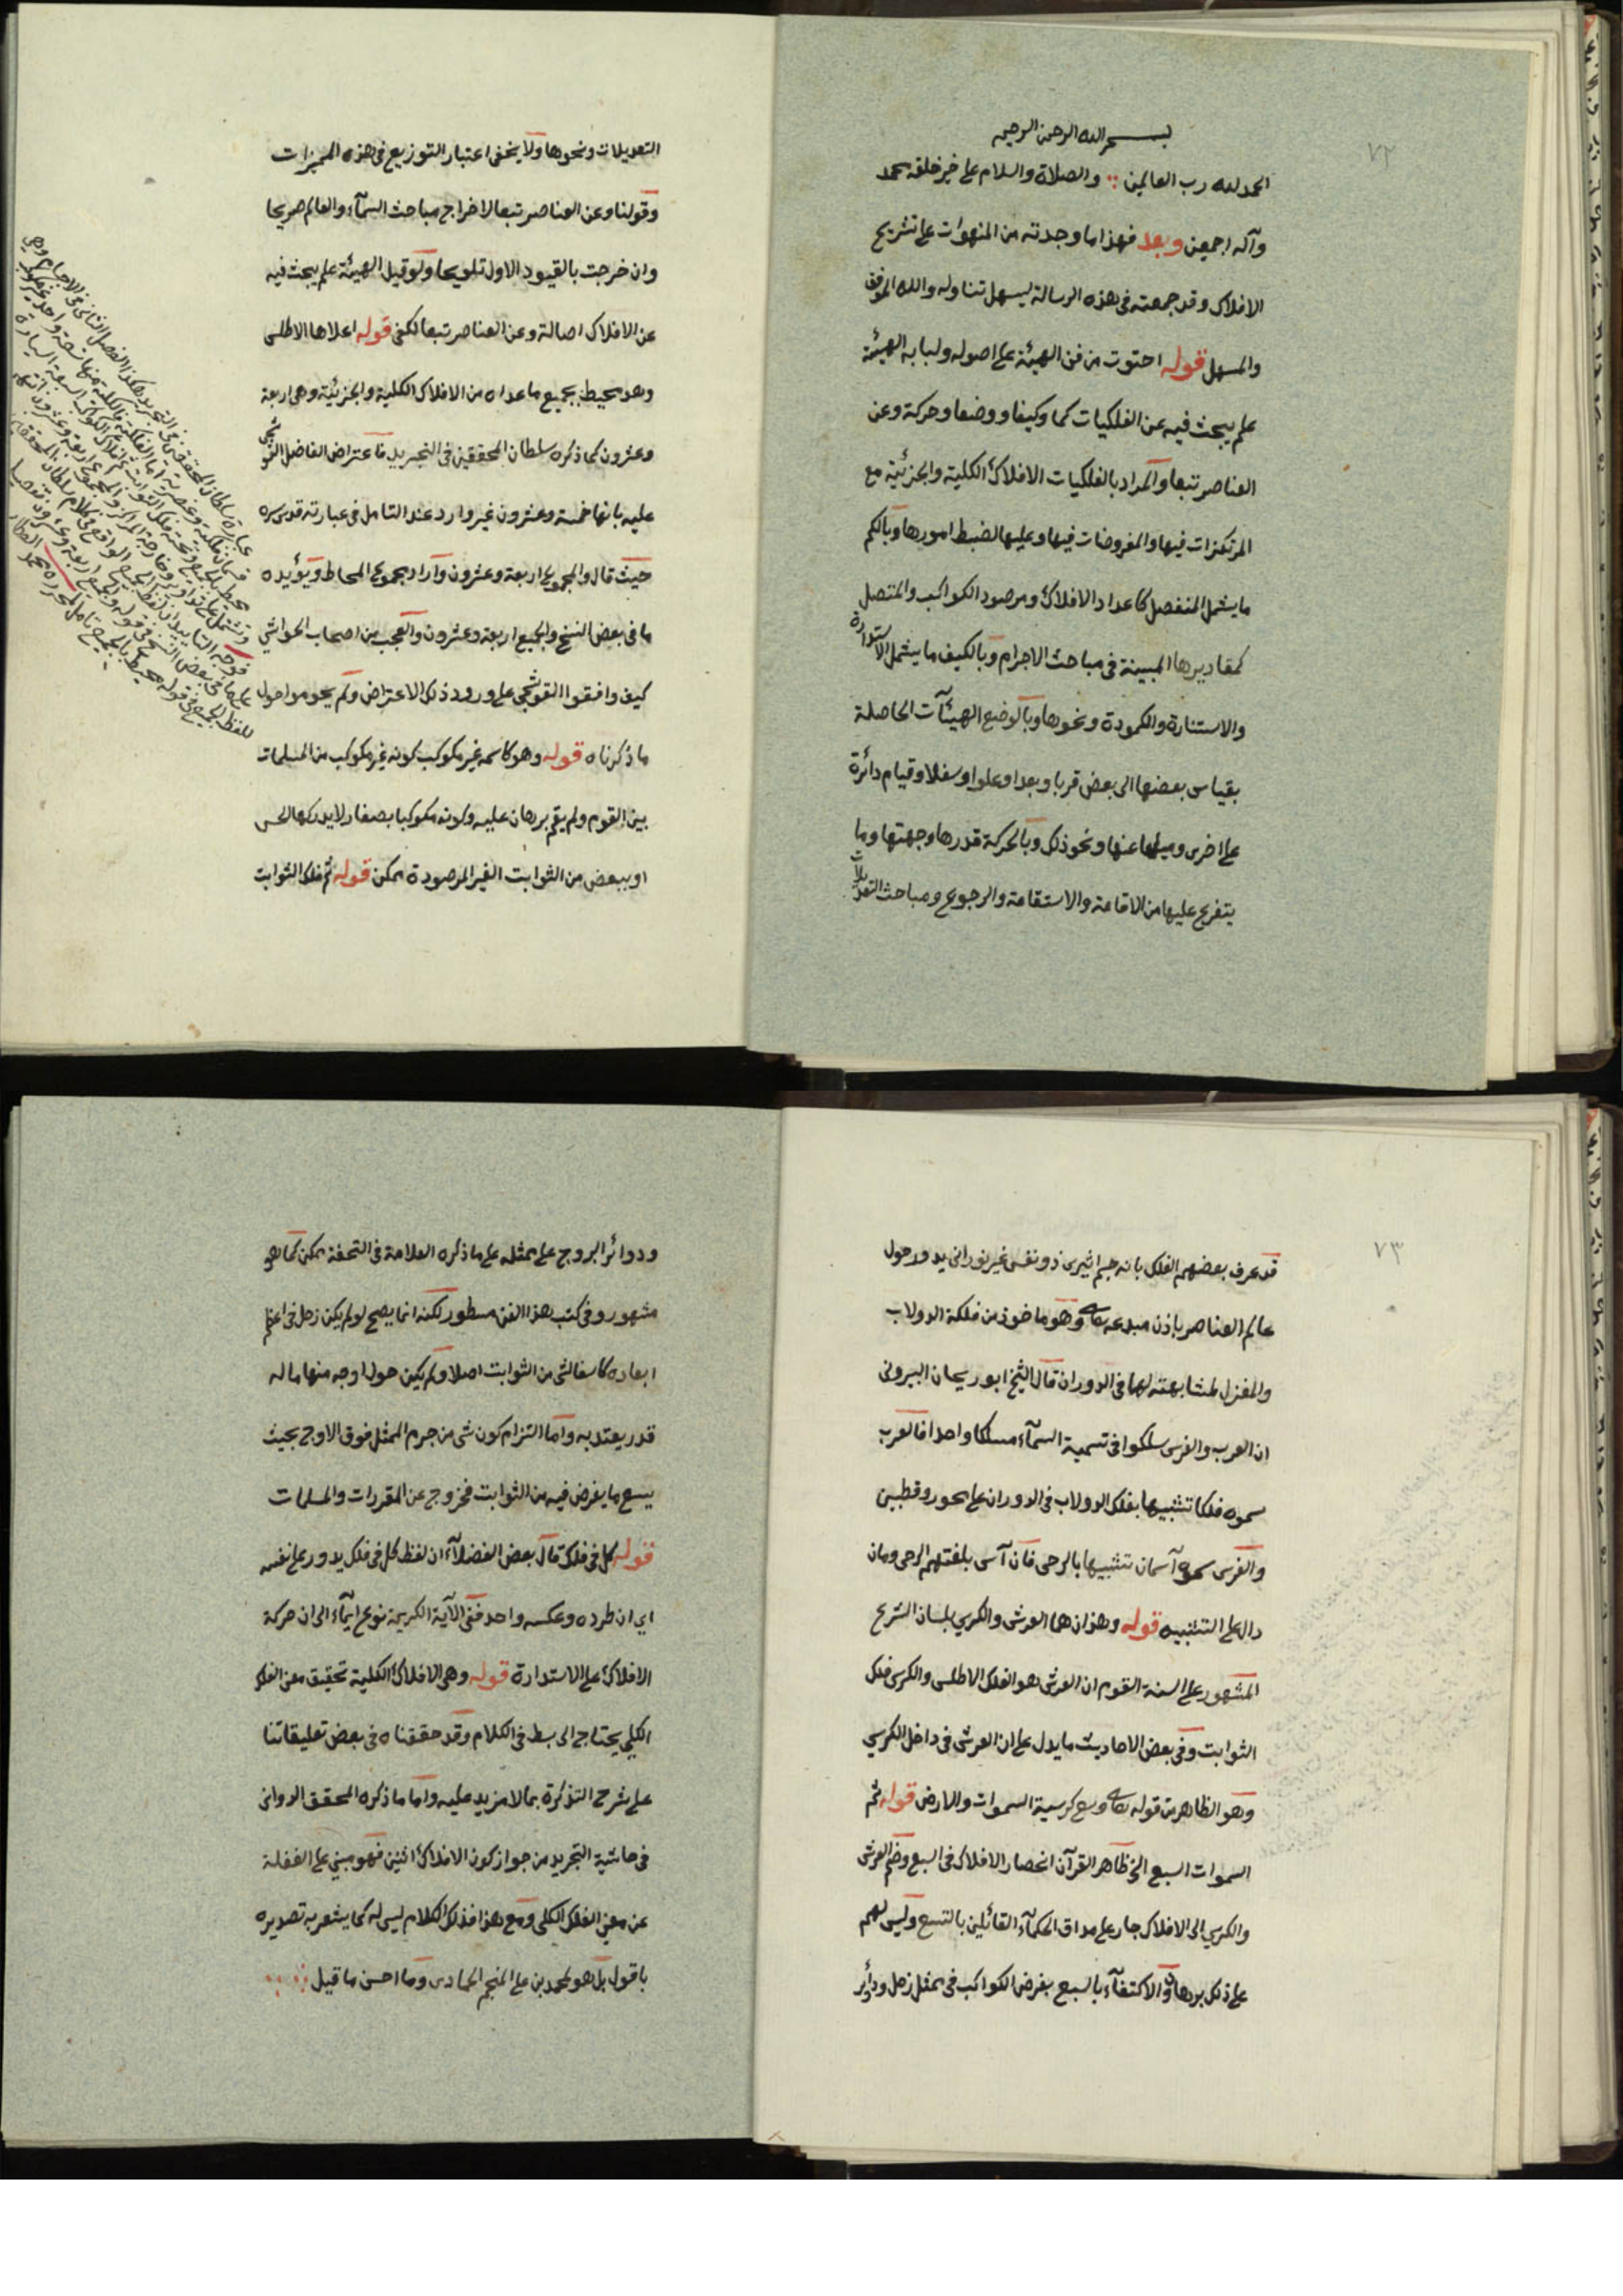 ٧٢
بسم الله الرحمن الرحيم
الحمد لله رب العالمين والصلاة والسلام على خير خلقه محمد
وآله اجمعين وبعد فهذا ما وجدته من المنهوات على تشريح
الافلاك وقد جمعته فى هذه الرسالة ليسهل تناوله والله الموفق
والمسهل قوله احتوت من فن الهيئة على اصوله ولبابه الهيئة
علم يبحث فيه عن الفلكيات كما وكيفا ووضعا وحركة وعن
العناصر تبعا والمراد بالفلكيات الافلاك الكلية والجزئية مع
المرتكزات فيها والمفروضات فيها وعليها لضبط امورها وبالكم
ما يشمل المنفصل كاعداد الافلاك ومرصود الكواكب والمتصل
كمقاديرها المبينة فى مباحث الاجرام وبالكيف ما يشمل الاستدارة
والاستنارة والكمودة ونحوها وبالوضع الهيئآت الحاصلة
بقياس بعضها الى بعض قربا وبعدا وعلوا وسفلا وقيام دائرة
على اخرى وميلها عنها ونحو ذلك وبالحركة قدرها وجهتها وما
يتفرع عليها من الاقامة والاستقامة والرجوع ومباحث التعديلات
التعديلات ونحوها ولا يخفى اعتبار التوزيع فى هذه المميزات
وقولنا وعن العناصر تبعا لاخراج مباحث السمآء والعالم صريحا
وان خرجت بالقيود الاول تلويحا ولو قيل الهيئة علم يبحث فيه
عن الافلاك اصالة وعن العناصر تبعا لكفى قوله اعلاها الاطلس
وهو محيط بجميع ما عداه من الافلاك الكلية والجزئية وهى اربعة
وعشرون كما ذكره سلطان المحققين فى التجريد فاعتراض الفاضل القوشجى
عليه بانها خمسة وعشرون غير وارد عند التامل فى عبارته قدس سره
حيث قال والمجموع اربعة وعشرون واراد مجموع المحاط ويؤيده
ما فى بعض النسخ والجميع اربعة وعشرون والعجب من اصحاب الحواشي
كيف وافقوا القوشجى على ورود ذلك الاعتراض ولم يحوموا حول
ما ذكرناه قوله وهو كاسمه غير مكوكب كونه غير مكوكب من المسلمات
بين القوم ولم يقم برهان عليه وكونه مكوكبا بصغار لا يدركها الحس
او ببعض من الثوابت الغير المرصودة ممكن قوله ثم فلك الثوابت
٧٣
قد عرف بعضهم الفلك بانه جسم اثيرى ذو نفس غير نورانى يدور حول
عالم العناصر باذن مبدعه وهو ماخوذ من فلكة الدولاب
والمغزل لمشابهته لها فى الدوران قال الشيخ ابو ريحان البيرونى
ان العرب والفرس سلكوا فى تسمية السمآء مسلكا واحدا فالعرب
سموه فلكا تشبيها بفلك الدولاب فى الدوران على محور وقطبين
والفرس سموه آسمان تشبيها بالرحى فان آس بلغتهم الرحى ومان
دال على التشبيه قوله وهذان هما العرش والكرسي بلسان الشرع
المشهور على السنة القوم ان العرش هو الفلك الاطلس والكرسى فلك
الثوابت وفى بعض الاحاديث ما يدل على ان العرش فى داخل الكرسي
وهو الظاهر من قوله وسع كرسيه السموات والارض قوله ثم
السموات السبع الخ ظاهر القرآن انحصار الافلاك فى السبع وضم العرش
والكرسي الى الافلاك جار على مذاق الحكمآء القائلين بالتسع وليس لهم
على ذلك برهان والاكتفآء بالسبع بفرض الكواكب فى ممثل زحل ودوائر
ودوائر البروج على ممثله على ما ذكره العلامة فى التحفة ممكن كما هو
مشهور وفى كتب هذا الفن مسطور لكنه انما يصح لو لم يكن زحل فى اعظم
ابعاده كاسفا لشى من الثوابت اصلا ولم يكن حول اوجه منها ما له
قدر يعتد به واما التزام كون شى من جرم الممثل فوق الاوج بحيث
يسع ما يفرض فيه من الثوابت فخروج عن المقررات والمسلمات
قوله كل فى فلك قال بعض الفضلآء ان لفظ كل فى فلك يدور على نفسه
اي ان طرده وعكسه واحد ففى الآية الكريمة نوع ايمآء الى ان حركة
الافلاك على الاستدارة قوله وهى الافلاك الكلية تحقيق معنى الفلك
الكلى يحتاج الى بسط فى الكلام وقد حققناه فى بعض تعليقاتنا
على شرح التذكرة بما لا مزيد عليه واما ما ذكره المحقق الدوانى
فى حاشية التجريد من جواز كون الافلاك اثنين فهو مبني على الغفلة
عن معنى الفلك الكلى ومع هذا فذلك الكلام ليس له كما يشعر به تصديره
باقول بل هو لمحمد بن على المنجم الحمادى وما احسن ما قيل